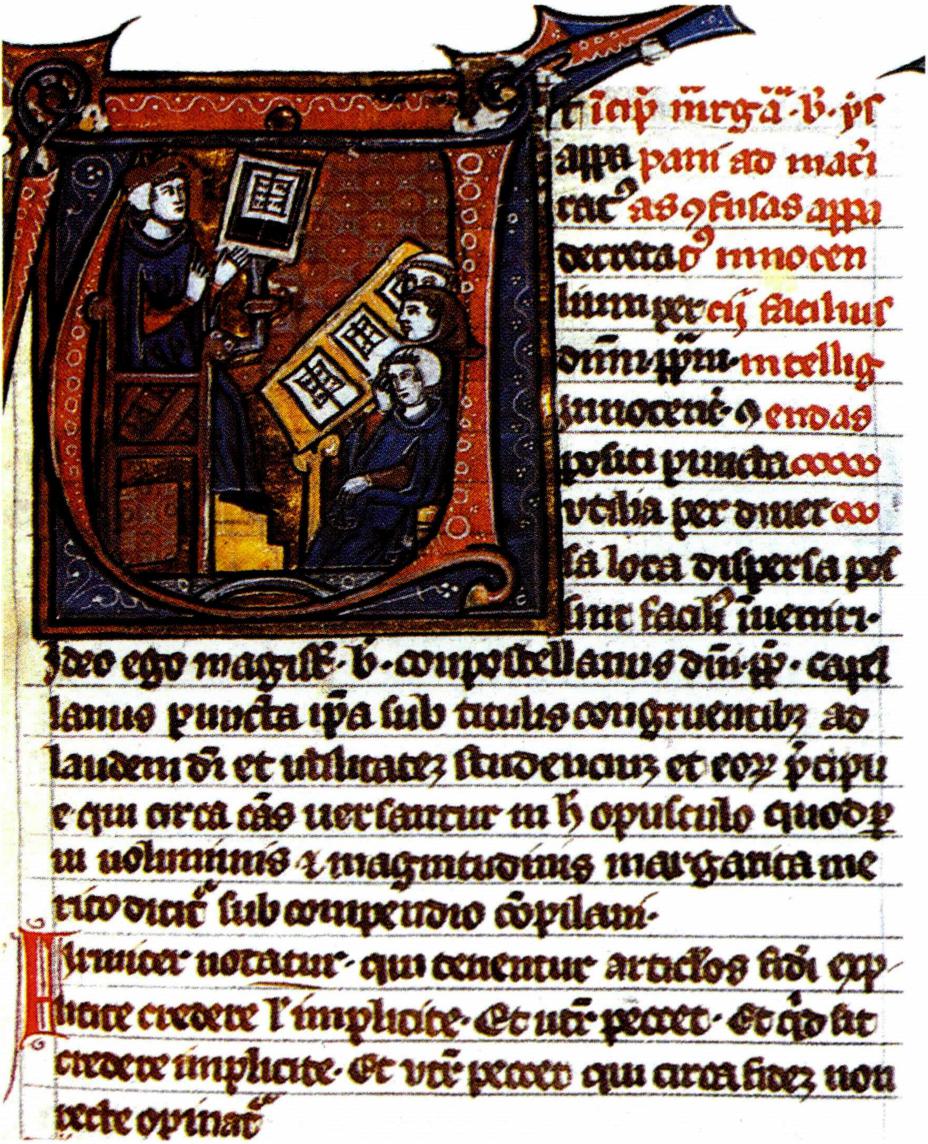 t īcip̄ m̄rgāā·b̄·ys
appa pani ad mat̄i
rac᷒ as ꝯfusas appa
decreta dn̄ innocen
tium per eū facilius
dn̄m ꝑꝑm̄·intellig
Innocent̄·ꝯ endas
positi puncta
utilia per diuer
sa loca dispersa pos
sint facilʼ īueniri·
Ideo ego magist̄·b̄·conpostellanus dn̄i·ꝑꝑ·capel
lanus puncta ip̄a sub titulis congruentibꝫ ad
laudem dī et utilitateꝫ studenciuꝫ et eoꝝ p̄cipu
e qui circa cās uersantur in h̓ opusculo quod ꝑ
ui uoluminis ⁊ magnitudinis margarita me
rito dicit᷑ sub compendio cōpilaui·
Firmiter notatur· qui tenentur articl̓os fidi exp
licite credere ł implicite· Et utr̄ peccet· Et qͥd sit
credere implicite· Et utr̄ peccet qui circa fideꝫ non
recte opinat᷑